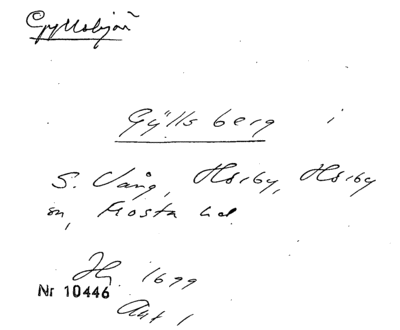 Gyllsbjär
Gÿllsberg i
S. Vång, Hörby, Hörby
sn, Frosta hd.
Jb. 1699
Nr 10446
Akt 1